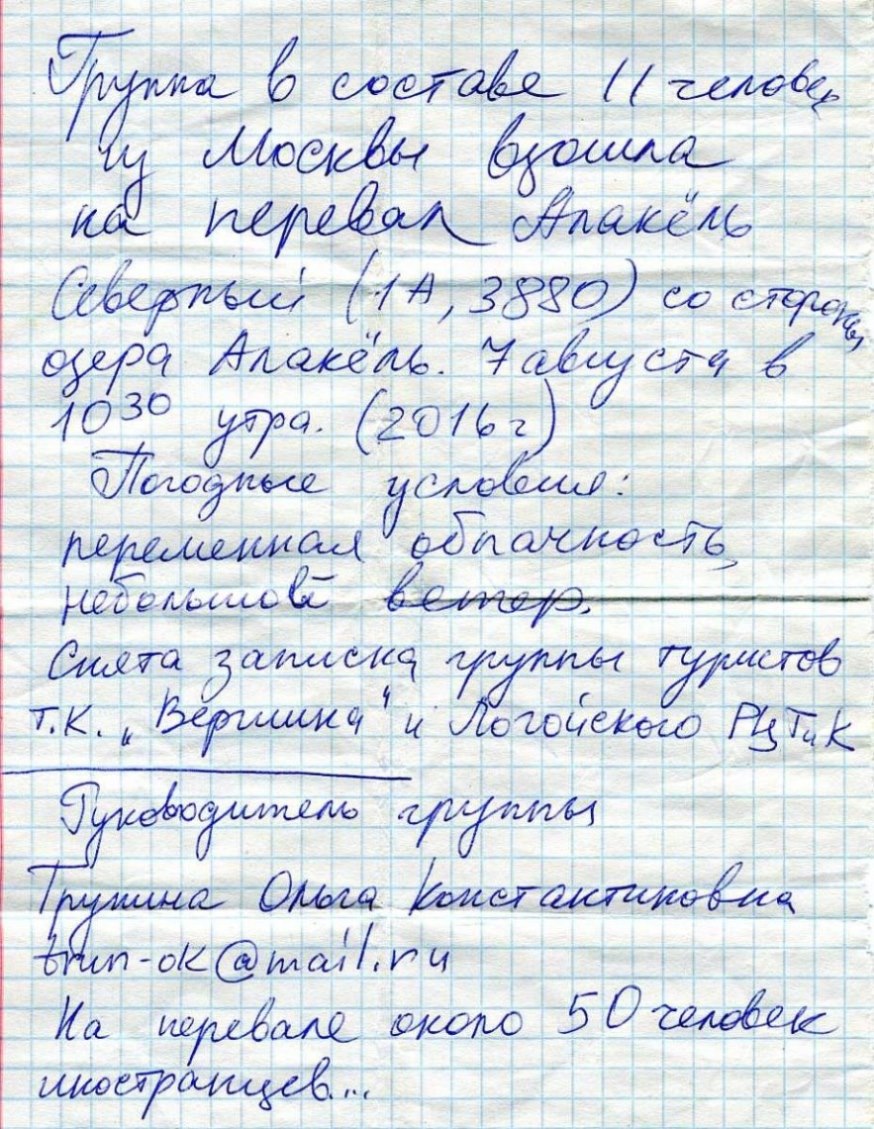 Группа в составе 11 человек
из Москвы взошла
на перевал Алакёль
Северный (1А, 3880) со стороны
озера Алакёль. 7 августа в
10³⁰ утра. (2016г)
Погодные условия:
переменная облачность,
небольшой ветер.
Снята записка группы туристов
т.к. „Вершина" и Логойского РЦТиК
Руководитель группы
Трунина Ольга Константиновна
trun-ok@mail.ru
На перевале около 50 человек
иностранцев...